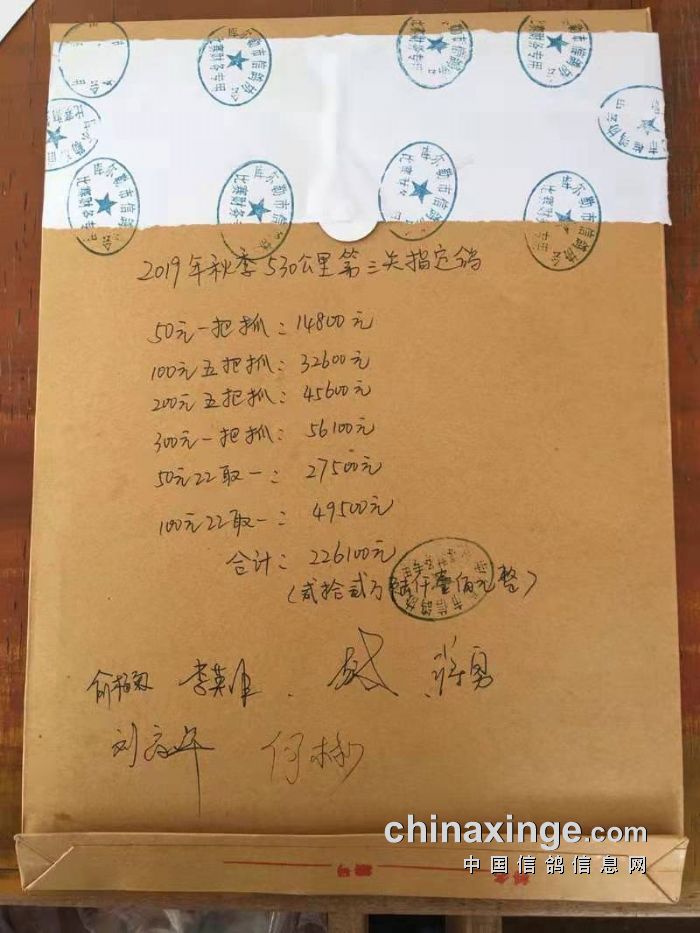 库尔勒市信鸽协会
比赛财务专用
2019年秋季530公里第三关指定鸽
50元一把抓：14800元
100元五把抓：32600元
200元五把抓：45600元
300元一把抓：56100元
50元22取一：27500元
100元22取一：49500元
合计：226100元
（贰拾贰万陆仟壹佰元整）
李英 蒋勇
何彬
chinaxinge.com
中国信鸽信息网